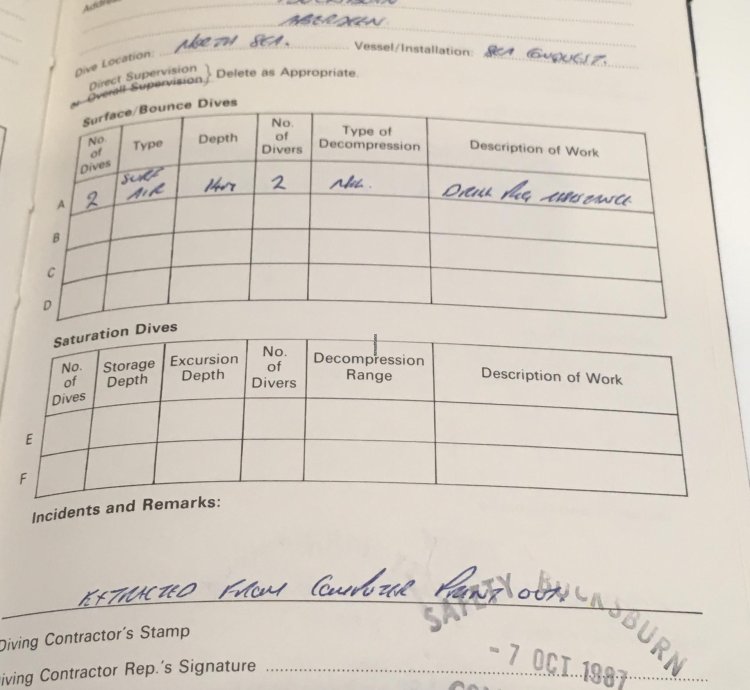 ABERDEEN
Dive Location: NORTH SEA. Vessel/Installation: SEA CONQUEST.
Direct Supervision
or Overall Supervision } Delete as Appropriate.
Surface/Bounce Dives
No. of Dives Type Depth No. of Divers Type of Decompression Description of Work
A 2 SURF AIR 14m 2 NIL. DRILL RIG ASSISTANCE
B
C
D
Saturation Dives
No. of Dives Storage Depth Excursion Depth No. of Divers Decompression Range Description of Work
E
F
Incidents and Remarks:
EXTRACTED FROM COMPUTER PRINT OUT
SAFETY BUCKSBURN
Diving Contractor's Stamp
- 7 OCT 1987
Diving Contractor Rep.'s Signature